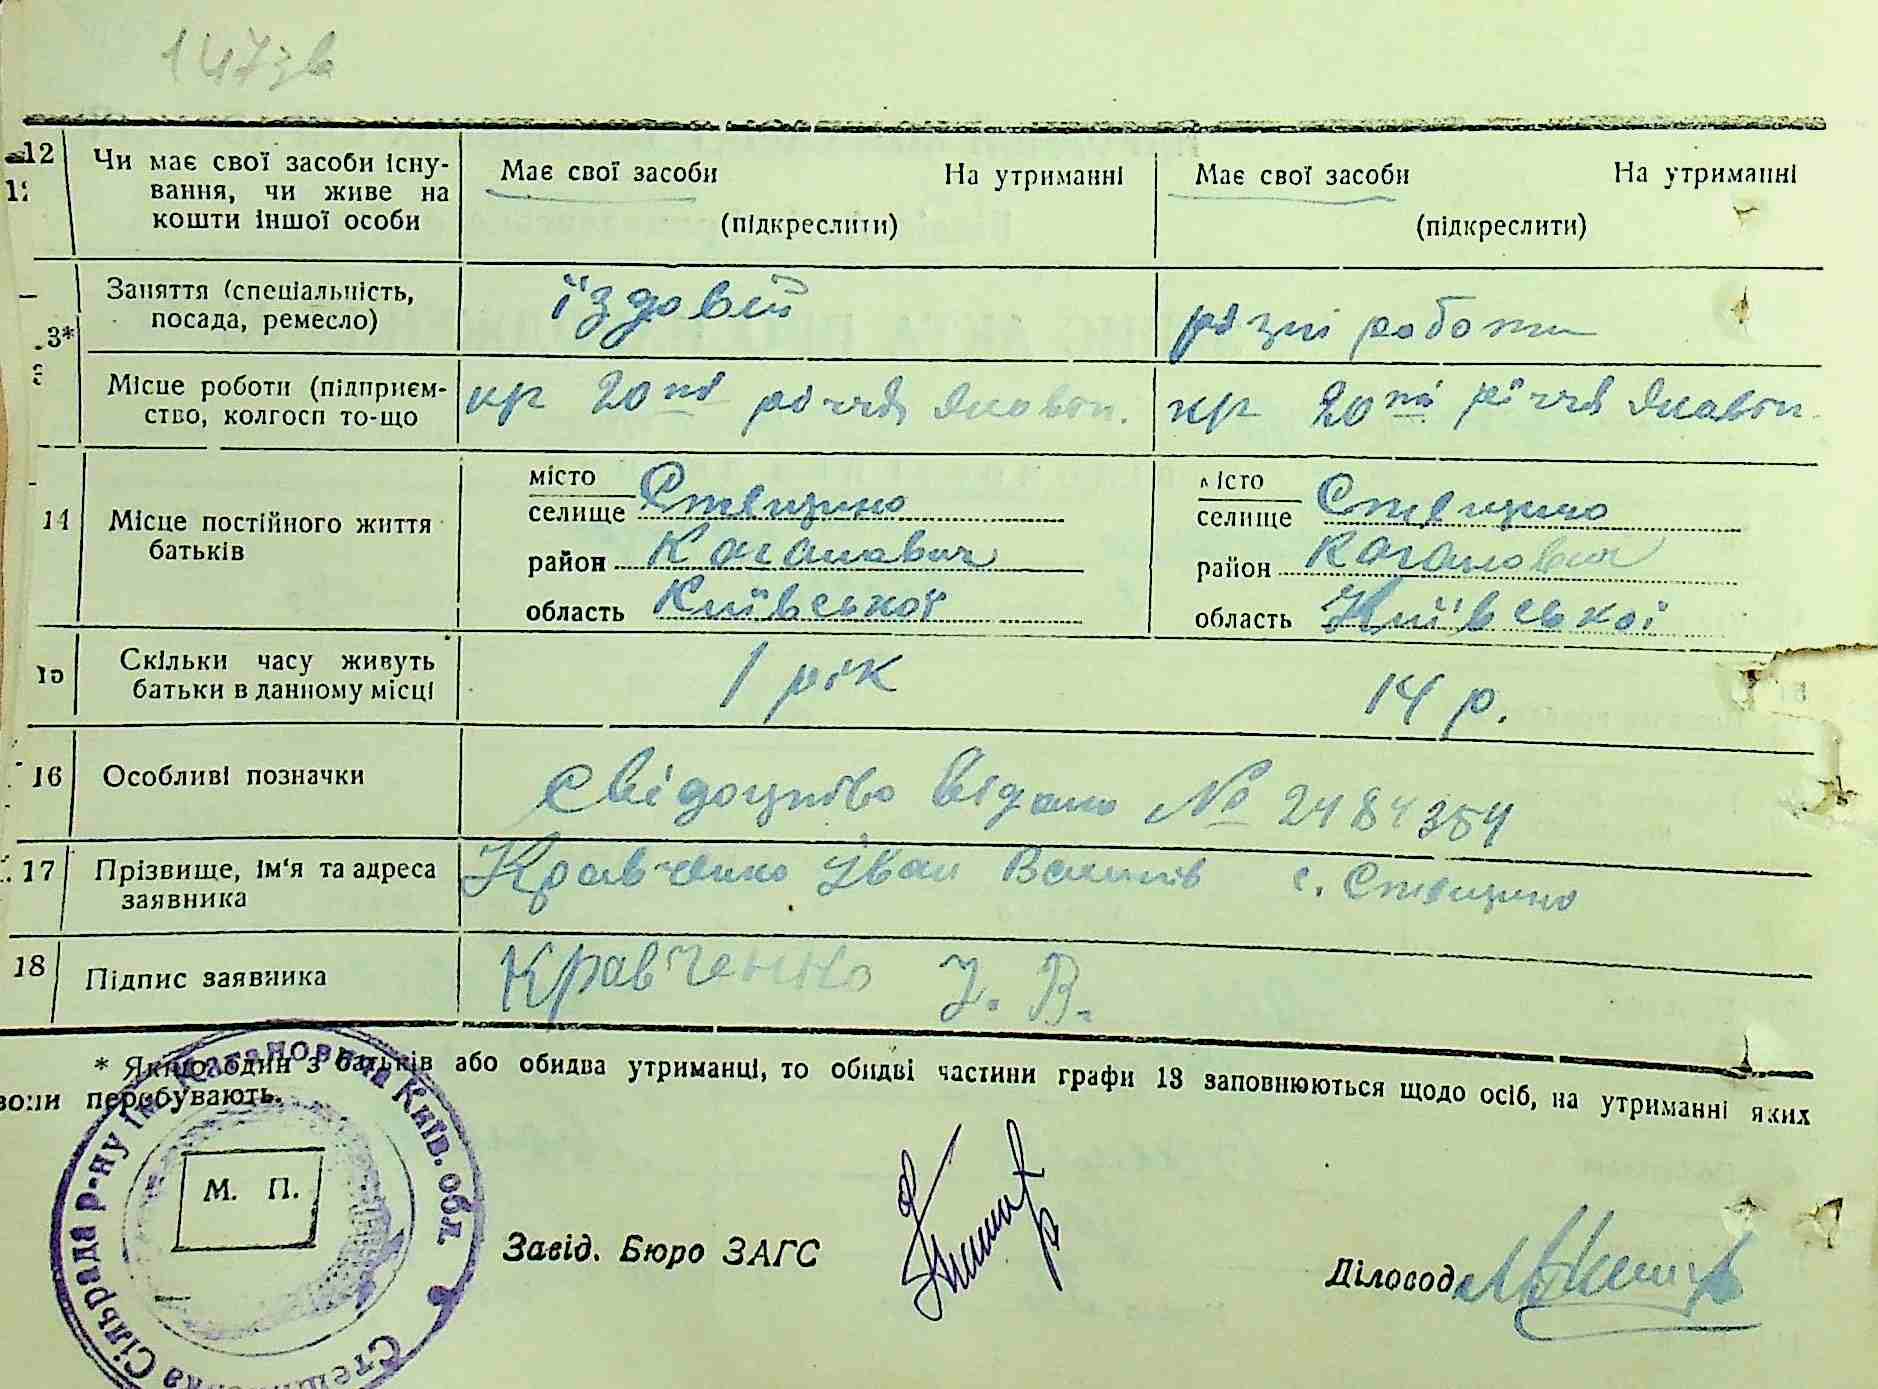 147зв
12 Чи має свої засоби існу-
вання, чи живе на
кошти іншої особи
Має свої засоби На утриманні
(підкреслити)
Має свої засоби На утриманні
(підкреслити)
3* Заняття (спеціальність,
посада, ремесло)
їздовий
різні роботи
Місце роботи (підприєм-
ство, колгосп то-що
кр 20ті річчя
кр 20ті річчя
14 Місце постійного життя
батьків
місто
селище Стещино
район Каганович
область Київської
місто
селище Стещино
район Каганович
область Київської
15 Скільки часу живуть
батьки в данному місці
1 рік
14 р.
16 Особливі позначки
свідоцтво видано № 2484354
17 Прізвище, ім'я та адреса
заявника
Кравченко Іван с. Стещино
18 Підпис заявника
Кравченко І. В.
* Якщо один з батьків або обидва утриманці, то обидві частини графи 13 заповнюються щодо осіб, на утриманні яких
вони перебувають.
Сільрада р-ну ім. Кагановича Київ. обл
М. П.
Завід. Бюро ЗАГС
Діловод